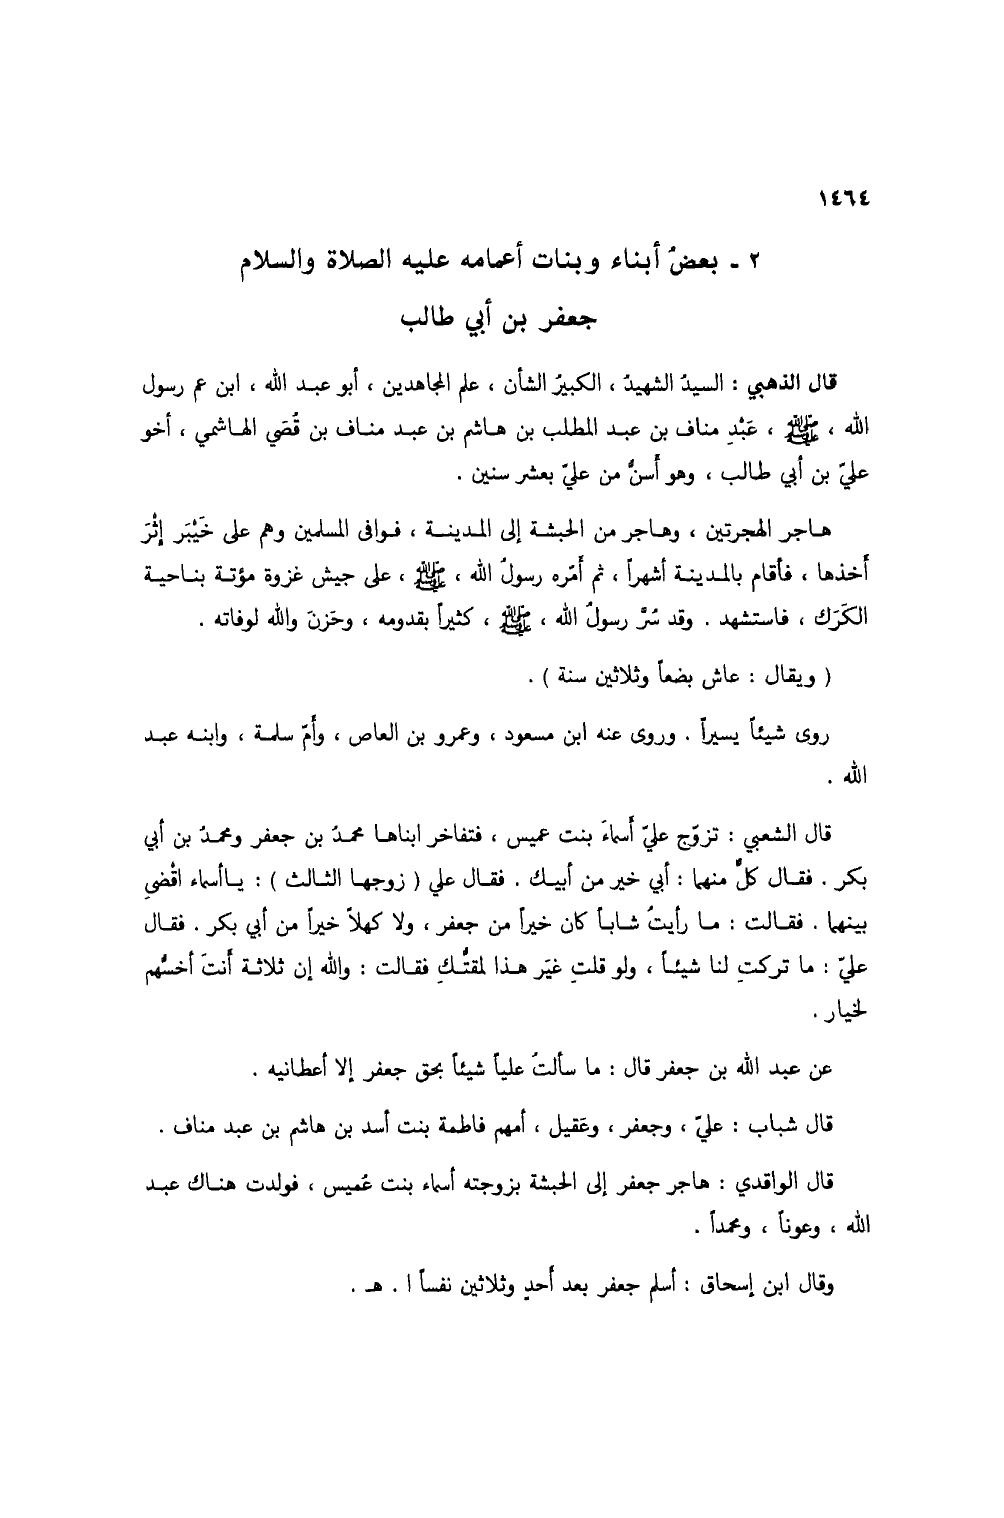 ١٤٦٤
٢ - بعضُ أبناء وبنات أعمامه عليه الصلاة والسلام
جعفر بن أبي طالب
قال الذهبي : السيدُ الشهيدُ ، الكبيرُ الشأن ، علم المجاهدين ، أبو عبد الله ، ابن عم رسول
الله ، ﷺ ، عَبْدِ مناف بن عبد المطلب بن هاشم بن عبد مناف بن قُصَي الهاشمي ، أخو
عليّ بن أبي طالب ، وهو أَسنُّ من عليّ بعشر سنين .
هاجر الهجرتين ، وهاجر من الحبشة إلى المدينة ، فوافى المسلمين وهم على خَيْبَر إثْرَ
أَخذها ، فأقام بالمدينة أشهراً ، ثم أَمّره رسولُ الله ، ﷺ ، على جيش غزوة مؤتة بناحية
الكَرَك ، فاستشهد . وقد سُرَّ رسولُ الله ، ﷺ ، كثيراً بقدومه ، وحَزنَ والله لوفاته .
( ويقال : عاش بضعاً وثلاثين سنة ) .
روى شيئاً يسيراً . وروى عنه ابن مسعود ، وعمرو بن العاص ، وأُمّ سلمة ، وابنه عبد
الله .
قال الشعبي : تزوّج عليّ أَسماءَ بنت عميس ، فتفاخر ابناها محمدُ بن جعفر ومحمدُ بن أبي
بكر . فقال كلٌّ منهما : أبي خير من أبيك . فقال علي ( زوجها الثالث ) : يا أسماء اقْضي
بينهما . فقالت : ما رأيتُ شاباً كان خيراً من جعفر ، ولا كهلاً خيراً من أبي بكر . فقال
عليّ : ما تركتِ لنا شيئاً ، ولو قلتِ غيَر هذا لمقتُّكِ فقالت : والله إن ثلاثة أَنتَ أخسُّهم
لخيار .
عن عبد الله بن جعفر قال : ما سألتُ علياً شيئاً بحق جعفر إلا أعطانيه .
قال شباب : عليّ ، وجعفر ، وعَقيل ، أمهم فاطمة بنت أسد بن هاشم بن عبد مناف .
قال الواقدي : هاجر جعفر إلى الحبشة بزوجته أسماء بنت عُميس ، فولدت هناك عبد
الله ، وعوناً ، ومحمداً .
وقال ابن إسحاق : أسلم جعفر بعد أَحدٍ وثلاثين نفساً ا . هـ .